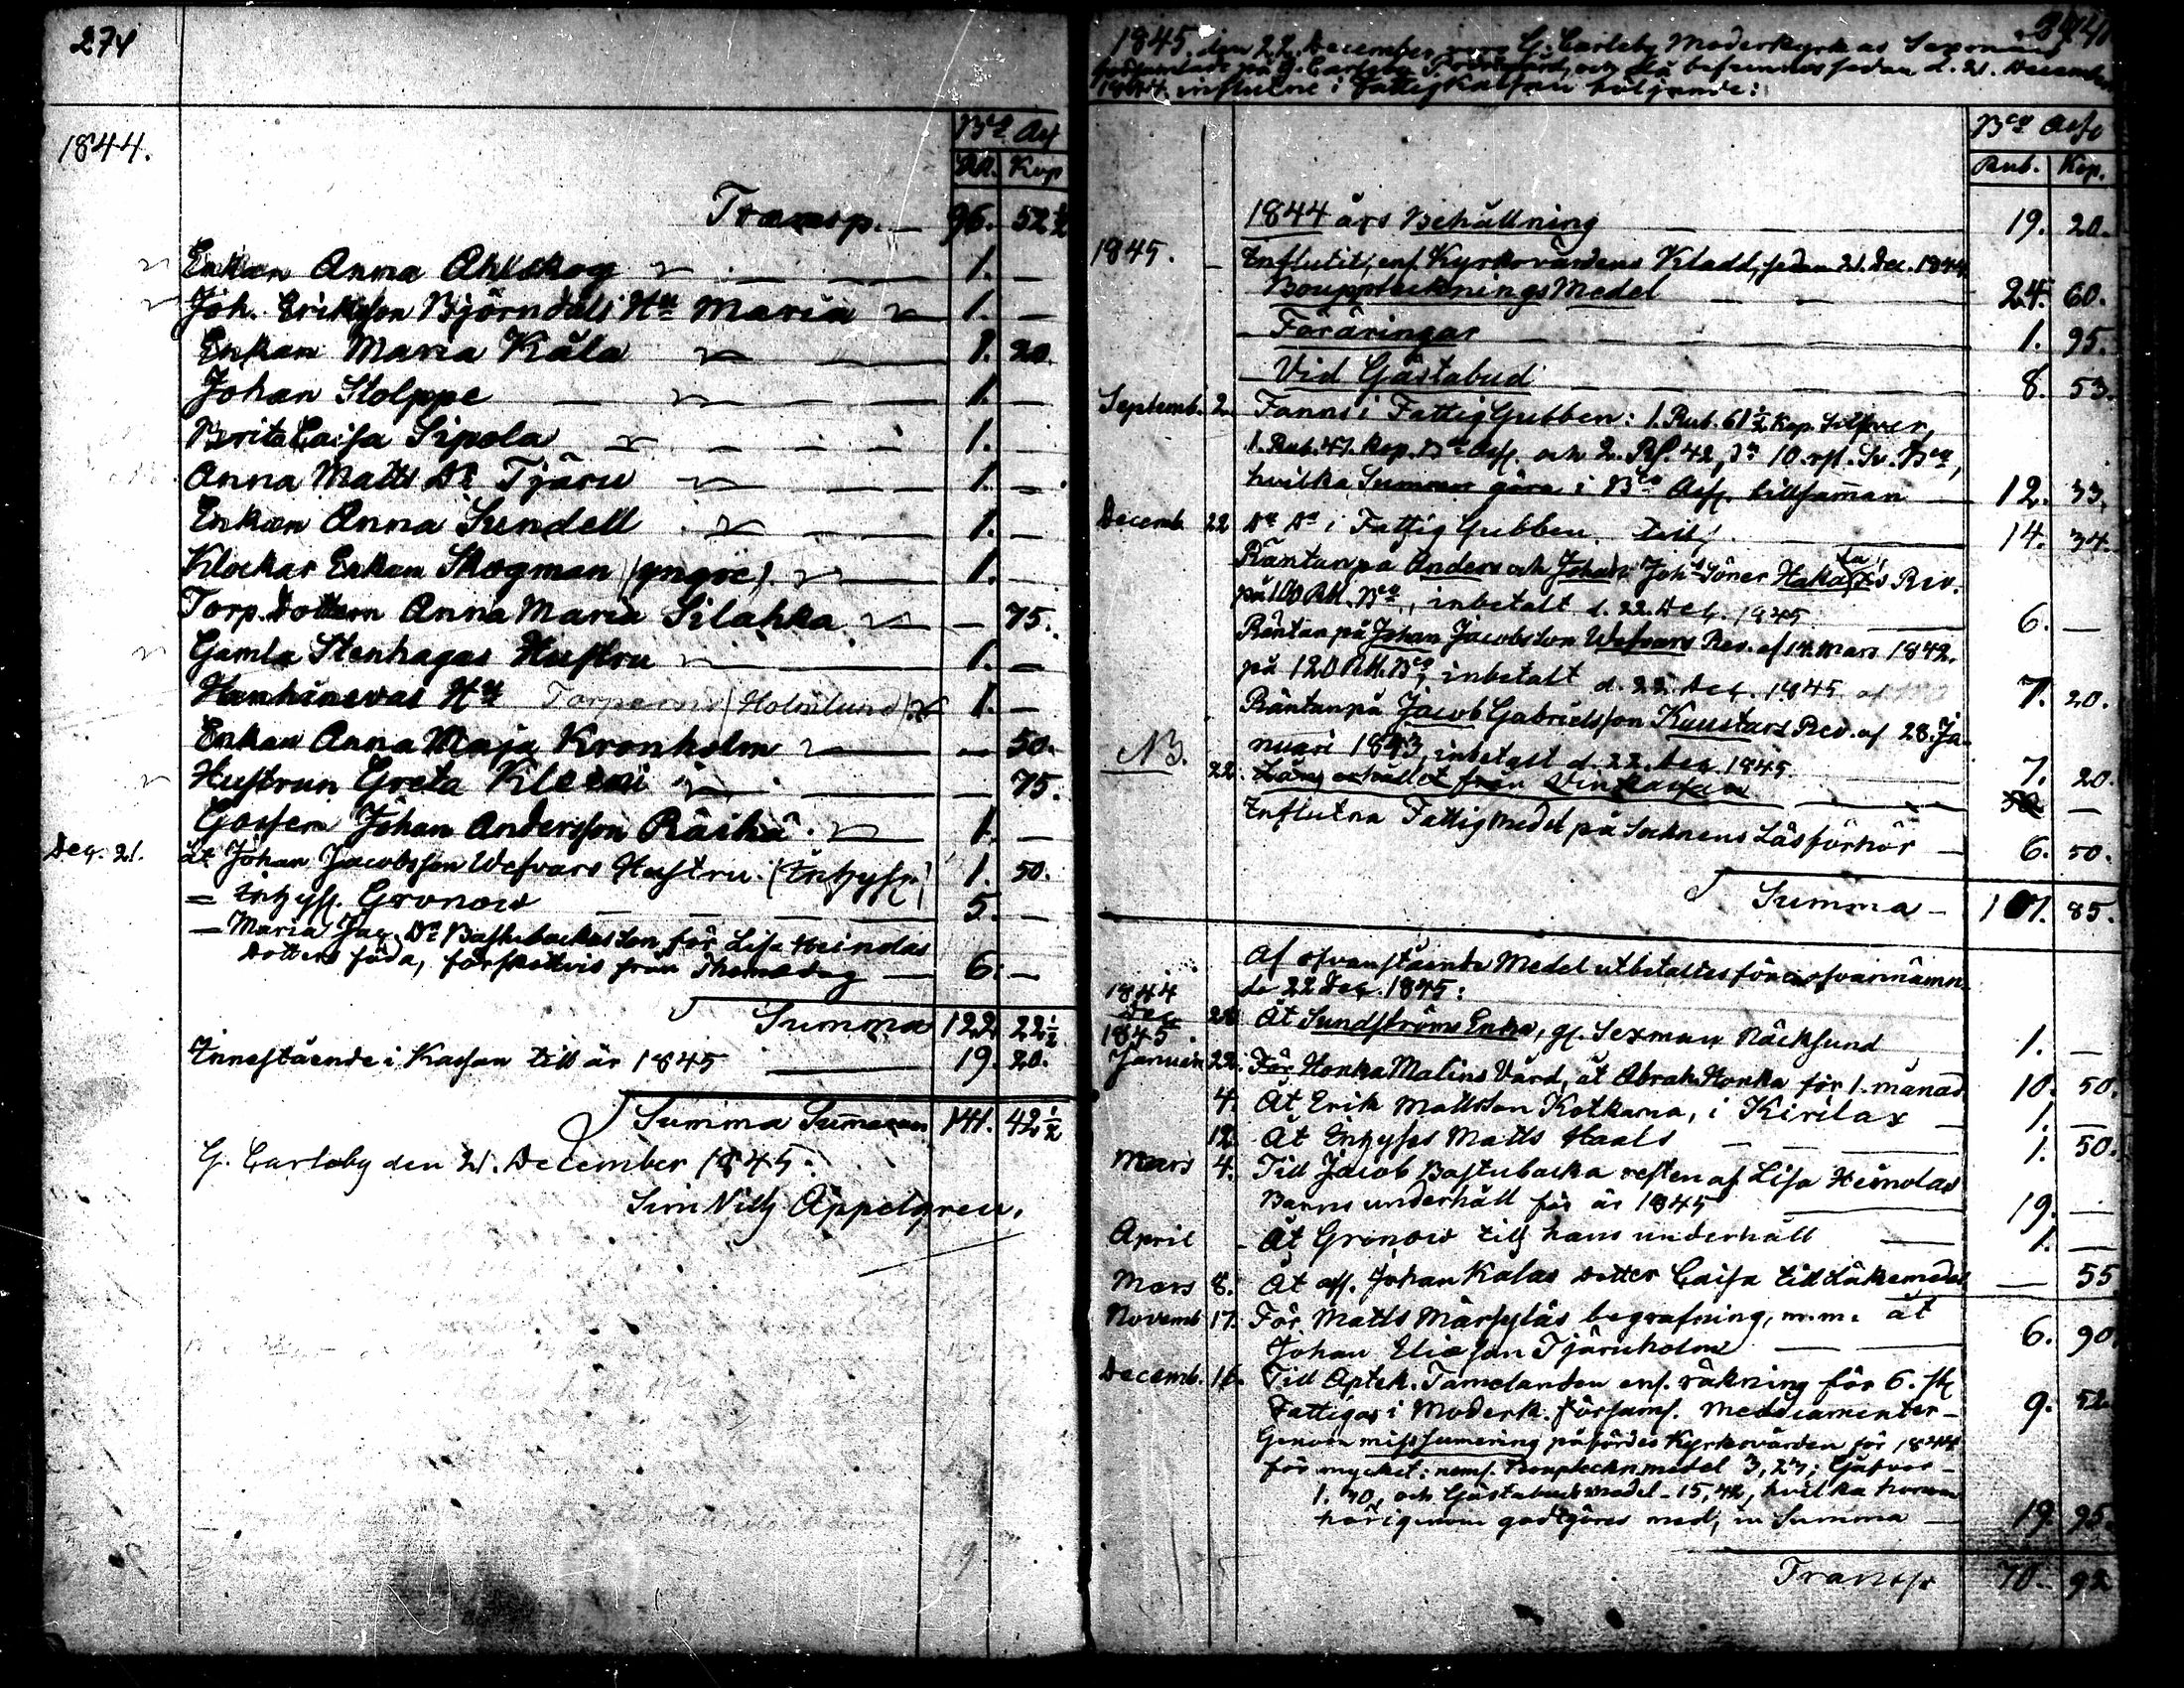 274
1844.
Bco Ass
Rbl. Kop
Transp. — 96. 52 ½
Enkan Anna Ahlskog — 1. —
Joh. Eriksson Björndals Hu Maria — 1. —
Enkan Maria Kåla — 1. 20.
Johan Stolppe — 1. —
Brita Caisa Sipola — 1. —
Anna Matts Dr Tjäru — 1. —
Enkan Anna Sundell — 1. —
Klockar Enkan Skogman (yngre) — 1. —
Torp. Dottern Anna Maria Silahka — 75.
Gamla Stenhagas Hustru — 1. —
Hanhinevas Hu Torparens (Holmlund) — 1. —
Enkan Anna Maja Kronholm — 50.
Hustrun Greta Kleemi — 75.
Gossen Johan Andersson Räihä — 1. —
Dec. 21. Åt Johan Jacobsson Wefvars Hustru (Inhyses) 1. 50.
— Inhyss. Gronow — 5. —
— Maria Jac. Dr Bastubacka Lön för Lisa Heinolas
Dotters föda, förskottvis från Thomædag — 6. —
Summa 122. 22 ½
Innestående i Kassan till år 1845 — 19. 20.
Summa Summarum 141. 42 ½
G. Carleby den 21. December 1845.
Sim Nils Appelgren.
1845. den 22. December G. Carleby Moderkyrkas Sexmän
på G. Carleby Prostgård, och då befunnos sedan d. 21. December
1844. influtne i Fattig Kassan följande:
Bco Assg
Rub. Kop.
1844 års Behållning — 19. 20.
1845. — Influtit, enl. Kyrkovärdens Kladd, sedan 21. Dec. 1844
Bouppteckнings Medel — 24. 60.
Föräringar — 1. 95.
Vid Gästabud — 8. 53.
Septemb. 2. Fanns i Fattig Gubben: 1. Rub. 61 ½ Kop. Silfver,
1. Rub. 47. Kop. Bco Assg. och 2. Rd. 42, 10. rst. Sv. Bco,
hvilka Summor göra i Bco Assg. tillsaman — 12. 33.
Decemb. 22 Do Do i Fattig Gubben — 14. 34.
Räntan på Anders och Johan Johs Söner Haka Rev.
på 100 Rbl. Bco, inbetalt d. 22. Dec. 1845 — 6. —
Räntan på Johan Jacobsson Wefvars Rev. af 14. Mars 1842.
på 120 Rbl. Bco, inbetalt d. 22. Dec. 1845 — 7. 20.
Räntan på Jacob Gabrielsson Kuustars Rev. af 28. Ja-
nuari 1843, inbetalt d. 22. Dec. 1845 — 7. 20.
NB. 22. Lån, erhållet från Vinkassan — 50 —
Influtna Fattig Medel på Socknens Läsförhör — 6. 50.
Summa — 107. 85.
Af ofvanstående Medel utbetaltes före ofvannämn-
de 22 Dec. 1845:
1844
Dec. 28. Åt Sundströms Enka, gl. Sexman Räcksund — 1. —
1845
Januari 22. För Honka Malins Vård, åt Abrah. Honka för 1. månad. 10. 50.
4. Åt Erik Mattsson Kotkama, i Kirilax — 1. —
12. Åt Inhyses Matts Haals — 1. 50.
Mars 4. Till Jacob Bastubacka resten af Lisa Heinolas
Barns underhåll för år 1845 — 19. —
April — Åt Gronow till hans underhåll — 1. —
Mars 8. Åt afl. Johan Kalas Dotter Caisa till Läkemedel — 55
Novemb. 17. För Matts Märsyläs begrafning, m.m. åt
Johan Eliasson Tjäruholm — 6. 90.
Decemb. 16. Till Aptek. Tamelander enl. räkning för 6. st.
Fattigas i Moderk. Församl. Medicamenter — 9. 52.
Genom missumering påfördes Kyrkovärden för 1844
för mycket: neml. Bouppteckn. medel 3, 23; Gåfvor —
1. 30, och Gästabuds medel — 15, 42, hvilka honom
härigenom godtgöres med, in Summa — 19. 95.
Transp. 70. 92